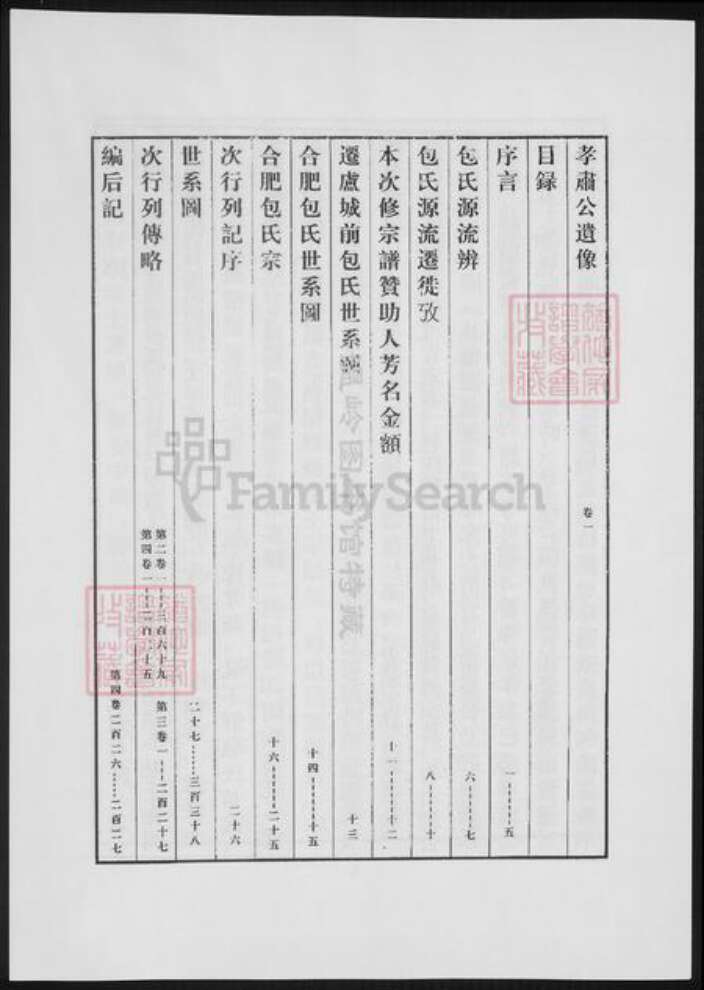 孝肅公遺像 卷一
目錄
序言 一------五
包氏源流辨 六------七
包氏源流遷徙攷 八------十
本次修宗譜贊助人芳名金額 十一------十二
遷盧城前包氏世系圖 十三
合肥包氏世系圖 十四------十五
合肥包氏宗 十六------二十五
次行列記序 二十六
世系圖 二十七……三百三十八
次行列傳略 第二卷一---三百六十九 第三卷一---二百二十七
第四卷一---二百二十五
編后記 第四卷二百二六……二百二七
FamilySearch